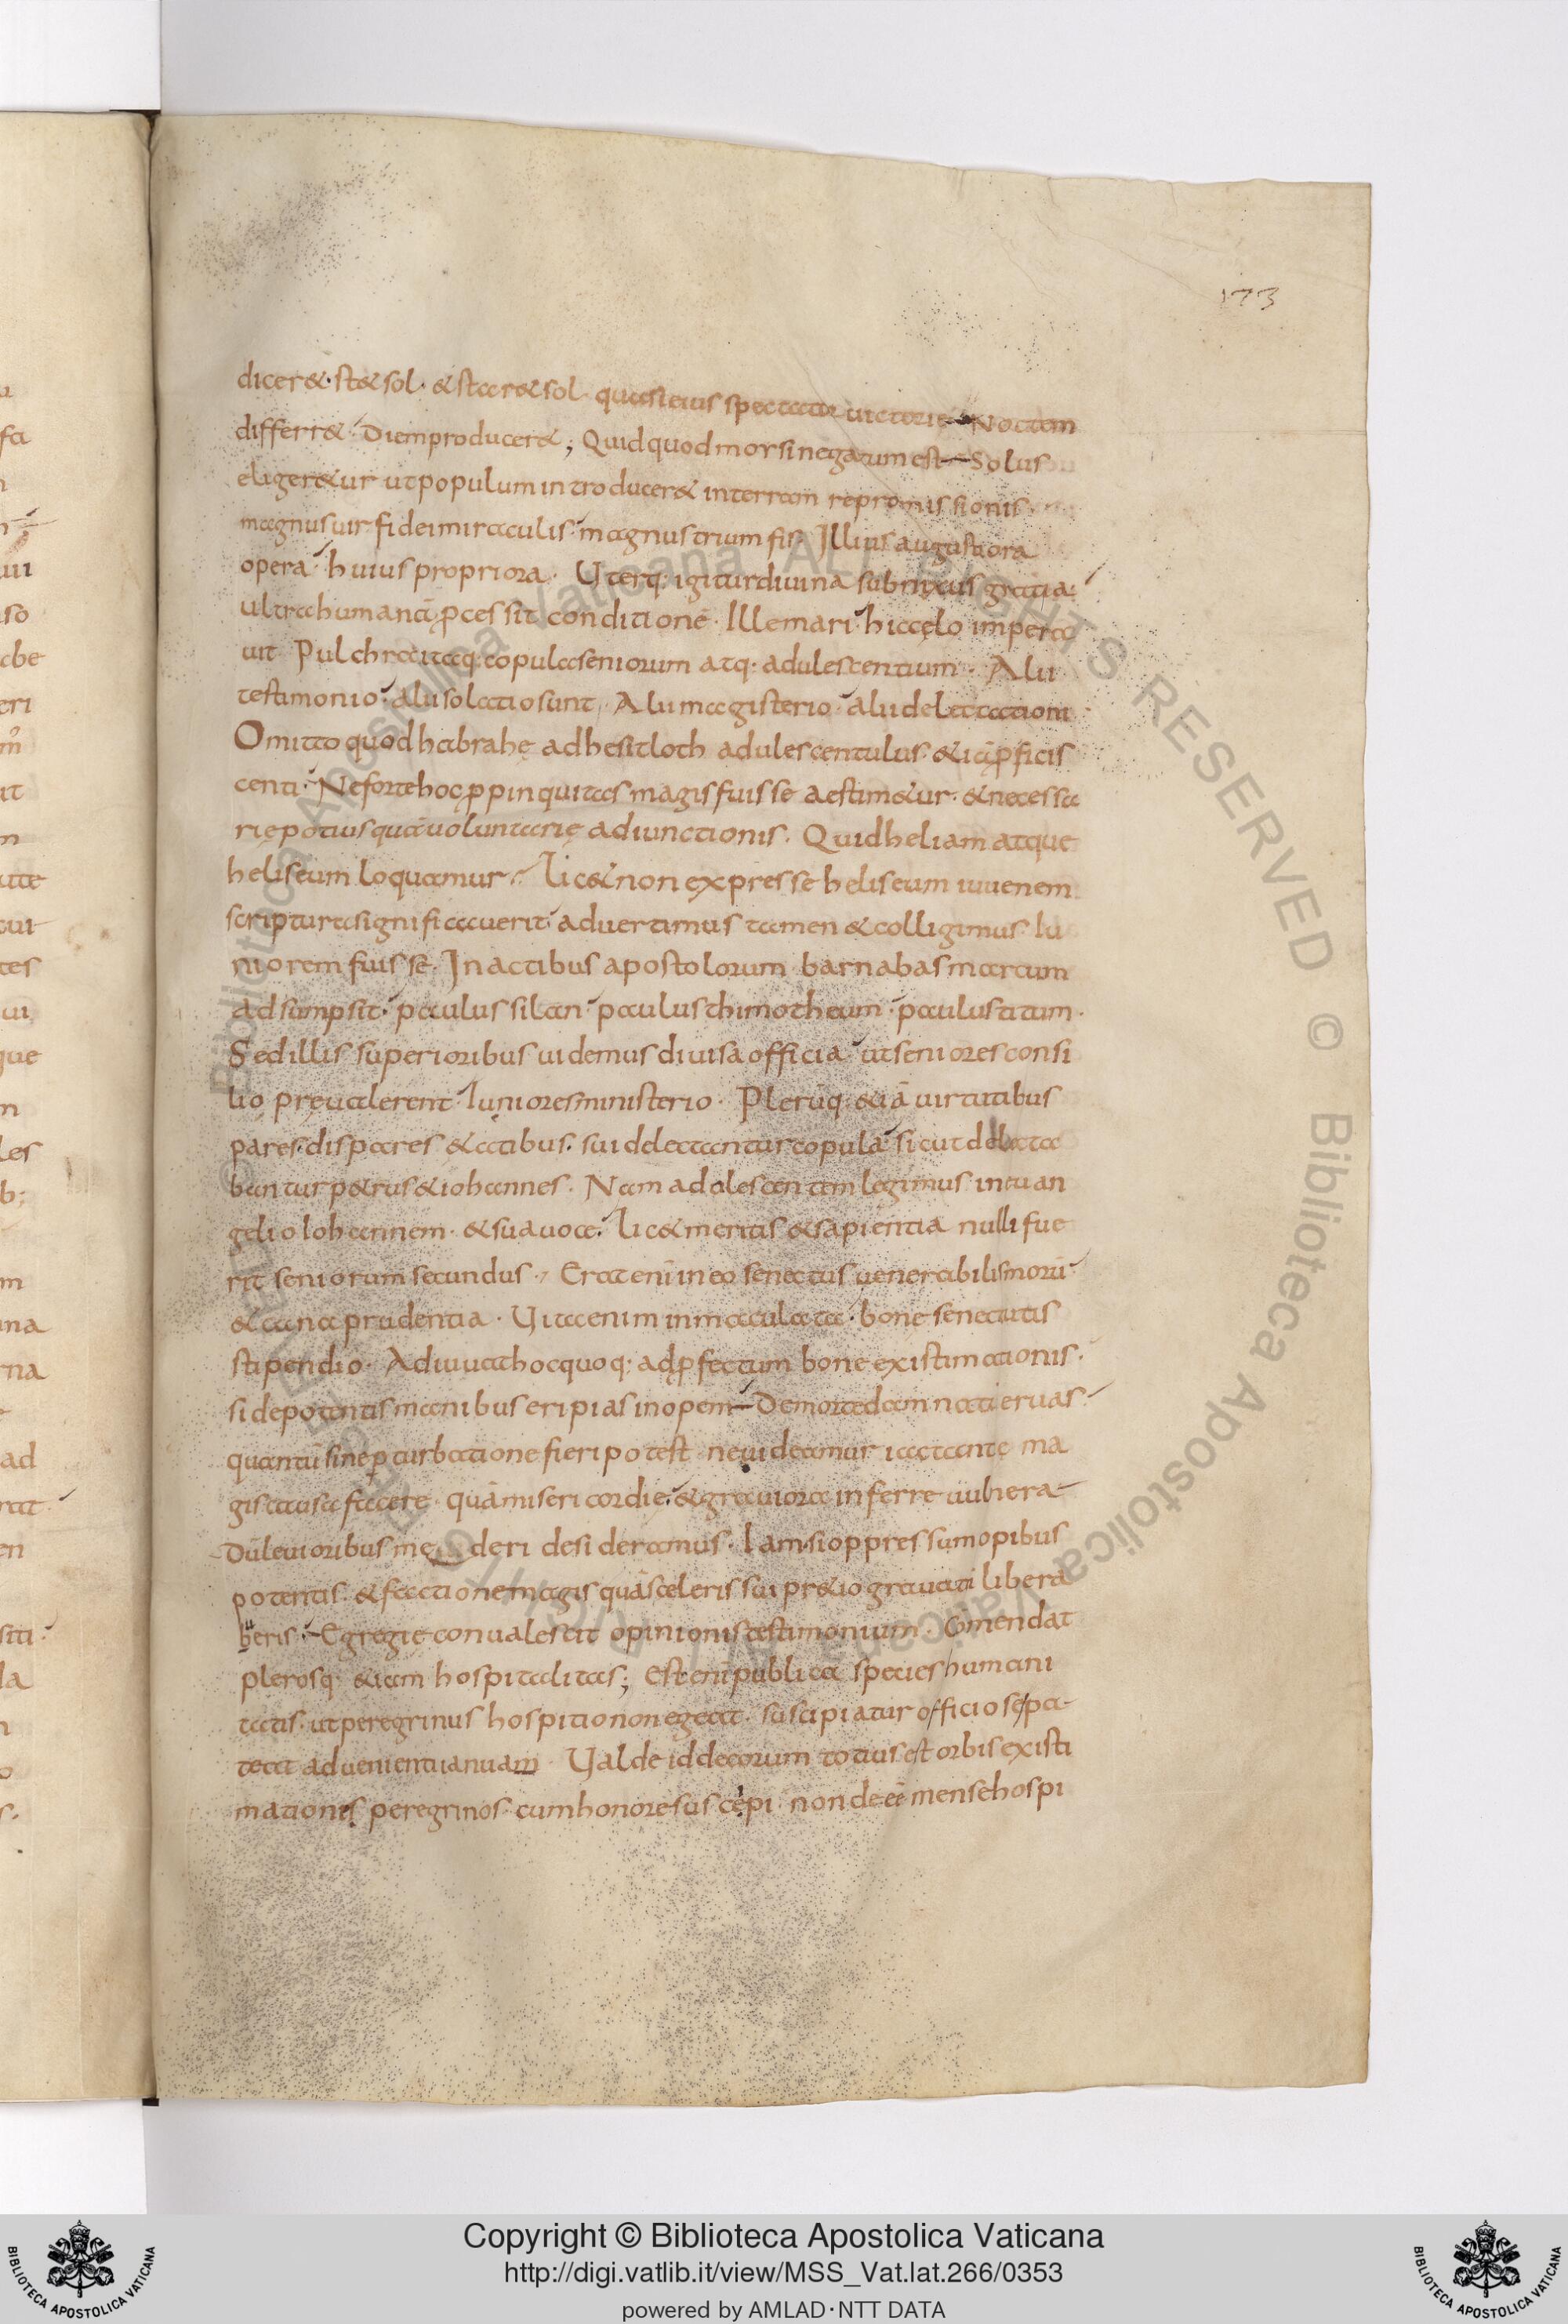 173
dicer&. st& sol. & staar& sol. quasi eius spectator uictorie Noctem
differr&. Diem producer&; Quid quod morsi negatum est Solus
eliger&ur ut populum introducer& in terram repromissionis.
magnus uir fidei miraculis. magnus triumfis. Illius augustiora
opera. huius propriora. Uterq: igitur diuina subnixus gratia.
ultra humanā p̄cessit conditionē. Ille mari. hic cęlo impera
uit Pulchra itaq; copula seniorum atq. adulescentium. Alii
testimonio. alii solatio sunt. Alii magisterio. alii delectationi
Omitto quod habrahę adhesit loth adulescentulus. & iā p̄ficis
centi. Ne forte hoc p̄pinquitas magis fuisse aestim&ur. & necessa
rię potius quā uoluntarię adiunctionis. Quid heliam atque
heliseum loquamur. Lic& non expresse heliseum iuuenem
scriptura significauerit. aduertimus tamen & colligimus. Iu
niorem fuisse. In actibus apostolorum barnabas marcum
adsumpsit. paulus silan. paulus thimotheum. paulus titum.
Sed illis superioribus uidemus diuisa officia. ut seniores consi
lio preualerent. Iuniores ministerio. Plerūq. &iā uirtutibus
pares. dispares &atibus. sui delectantur copula. sicut delecta
bantur p&rus & iohannes. Nam adolescentem legimus in euan
gelio Iohannem. & sua uoce. Lic& meritis & sapientia nulli fue
rit seniorum secundus. Erat enī in eo senectus uenerabilis morū.
& cana prudentia. Uita enim inmaculata. bone senectutis
stipendio. Adiuuat hoc quoq; ad p̄fectum bone existimationis.
si de potentis manibus eripias inopem De morte damnati eruas.
quantū sine p̄turbatione fieri potest. ne uideamur iactante ma
gis causa facere. quā misericordie. & grauiora inferre uulnera
Dū leuioribus mederi desideramus. Iam si oppressum opibus
potentis. & factione magis quā sceleris sui pr&io grauati libera
beris. Egregie conualescit opinionis testimonium. Cōmendat
plerosq. &iam hospitalitas; Est enī publica species humani
tatis. ut peregrinus hospitio non egeat. suscipiatur officiose pa
teat aduenienti ianuam. Ualde id decorum totius est orbis existi
mationis peregrinos cum honore suscępi. non deēē mense hospi
Copyright © Biblioteca Apostolica Vaticana
http://digi.vatlib.it/view/MSS_Vat.lat.266/0353
powered by AMLAD·NTT DATA